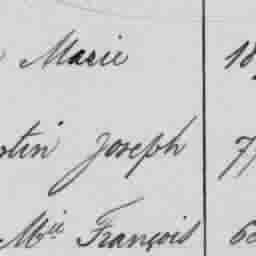 Marie 18
stin Joseph 7
Mie François 6